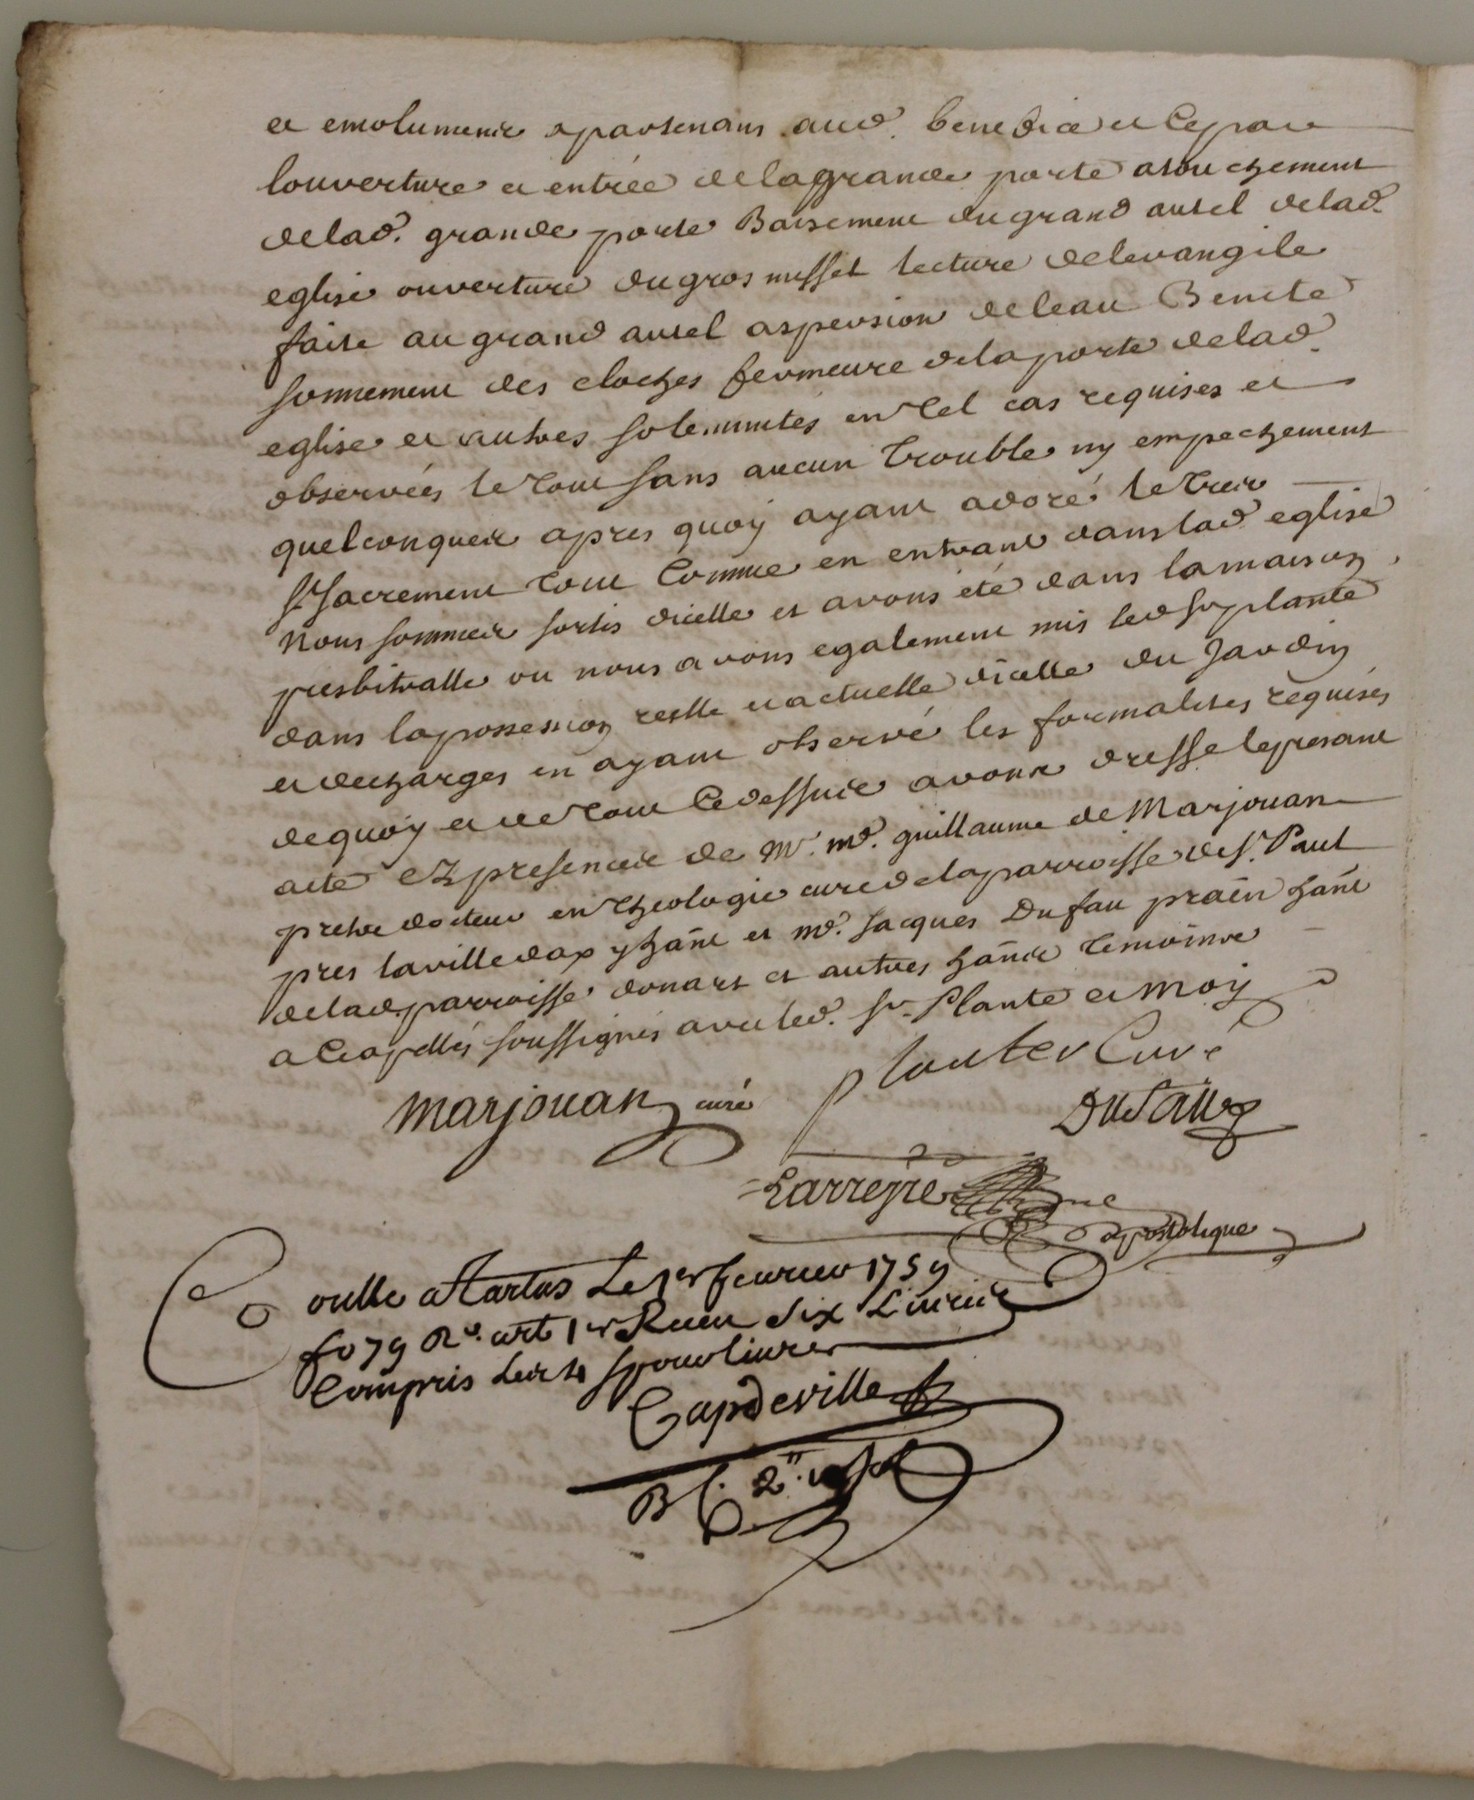 et emoluments apartenans aud. benefice et ce par
louverture et entrée de la grande porte atouchement
de lad. grande porte Baisement du grand autel de lad.
eglise ouverture du gros missel lecture de levangile
faite au grand autel aspersion de leau Benite
sonnement des cloches fermeure de la porte de lad.
eglise et autres solemnités en tel cas requises et
observées le tout sans aucun trouble ny empechement
quelconques apres quoy ayant adoré le tres
St Sacrement tout comme en entrant dans lad eglise
Nous sommes sortis dicelle et avons été dans la maison
presbitralle ou nous avons egalement mis led sr plante
dans la possession reelle et actuelle dicelle du Jardin
et decharges en ayant observé les formalites requises
de quoy et de tout ce dessus avons dressé le presant
acte en presence de Mr. me. guillaume de Marjouan
pretre docteur en theologie curé de la parroisse de St. Paul
pres la ville dax y hānt et me. Jacques Dufau prāēn hānt
de lad. parroisse donart et autres hāns temoins
a ce apellés soussignés avec led. Sr. Plante et moy
Marjouan curé
planter Curé
Dufau
Larreyre
apostolique
Conlle a Tartas Le 1er feurier 1759
fo 79 Ro. art 1er Receu Six Liures
Compris Les 4 s pour liure
Capdeville